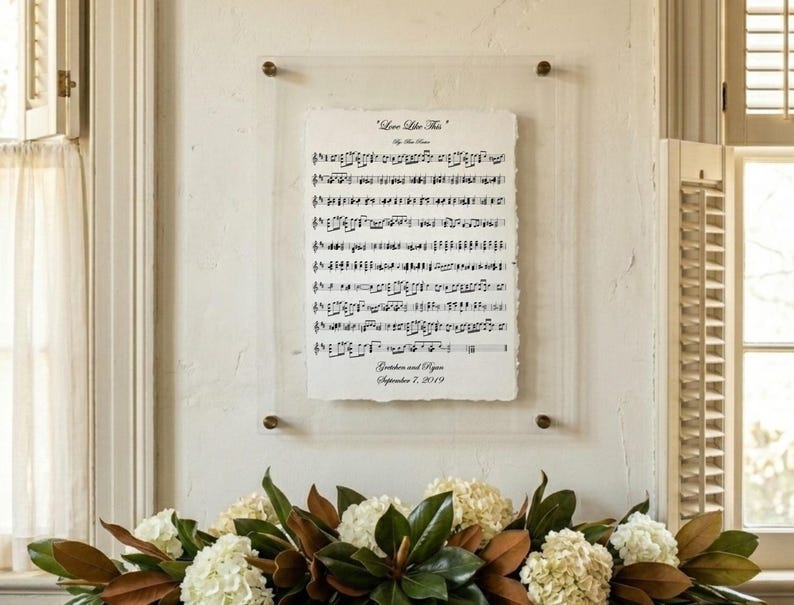 "Love Like This"
By: Ben Rector
Gretchen and Ryan
September 7, 2019